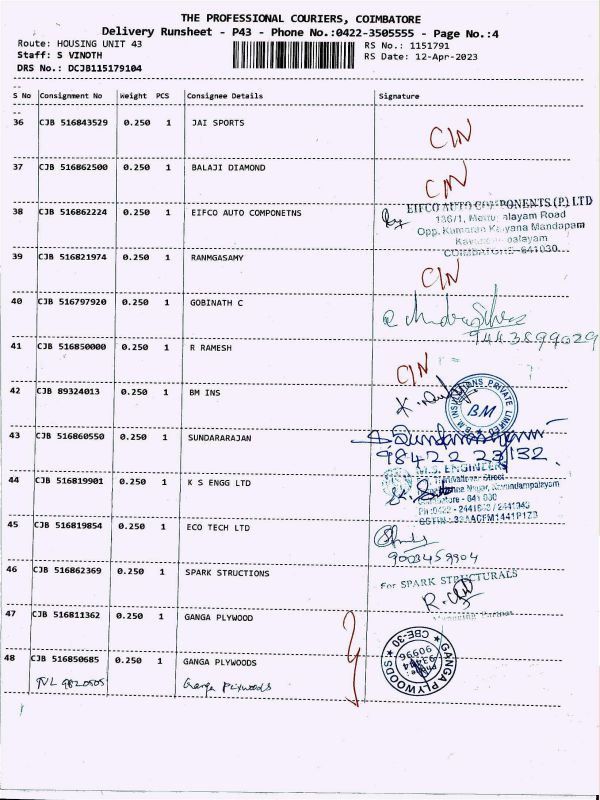 THE PROFESSIONAL COURIERS, COIMBATORE
Delivery Runsheet - P43 - Phone No.:0422-3505555 - Page No.:4
Route: HOUSING UNIT 43
RS No.: 1151791
Staff: S VINOTH
RS Date: 12-Apr-2023
DRS No.: DCJB115179104
S No Consignment No Weight PCS Consignee Details Signature
36 CJB 516843529 0.250 1 JAI SPORTS
CIN
37 CJB 516862500 0.250 1 BALAJI DIAMOND
CIN
38 CJB 516862224 0.250 1 EIFCO AUTO COMPONETNS
EIFCO AUTO COMPONENTS (P.) LTD
136/1, alayam Road
Opp. Kumaran Kalyana Mandapam
COIMBATORE - 641030.
39 CJB 516821974 0.250 1 RANMGASAMY
CIN
40 CJB 516797920 0.250 1 GOBINATH C
9443899029
41 CJB 516850000 0.250 1 R RAMESH
CIN
42 CJB 89324013 0.250 1 BM INS
BM
43 CJB 516860550 0.250 1 SUNDARARAJAN
98422 23132
44 CJB 516819901 0.250 1 K S ENGG LTD
M.S. ENGINEERS
Street
Nagar, Kavundampalayam
Coimbatore - 641 030
45 CJB 516819854 0.250 1 ECO TECH LTD
9003459904
46 CJB 516862369 0.250 1 SPARK STRUCTIONS
For SPARK STRUCTURALS
Managing Partner
47 CJB 516811362 0.250 1 GANGA PLYWOOD
48 CJB 516850685 0.250 1 GANGA PLYWOODS
GANGA PLYWOODS
CBE-30
Ganga Plywoods